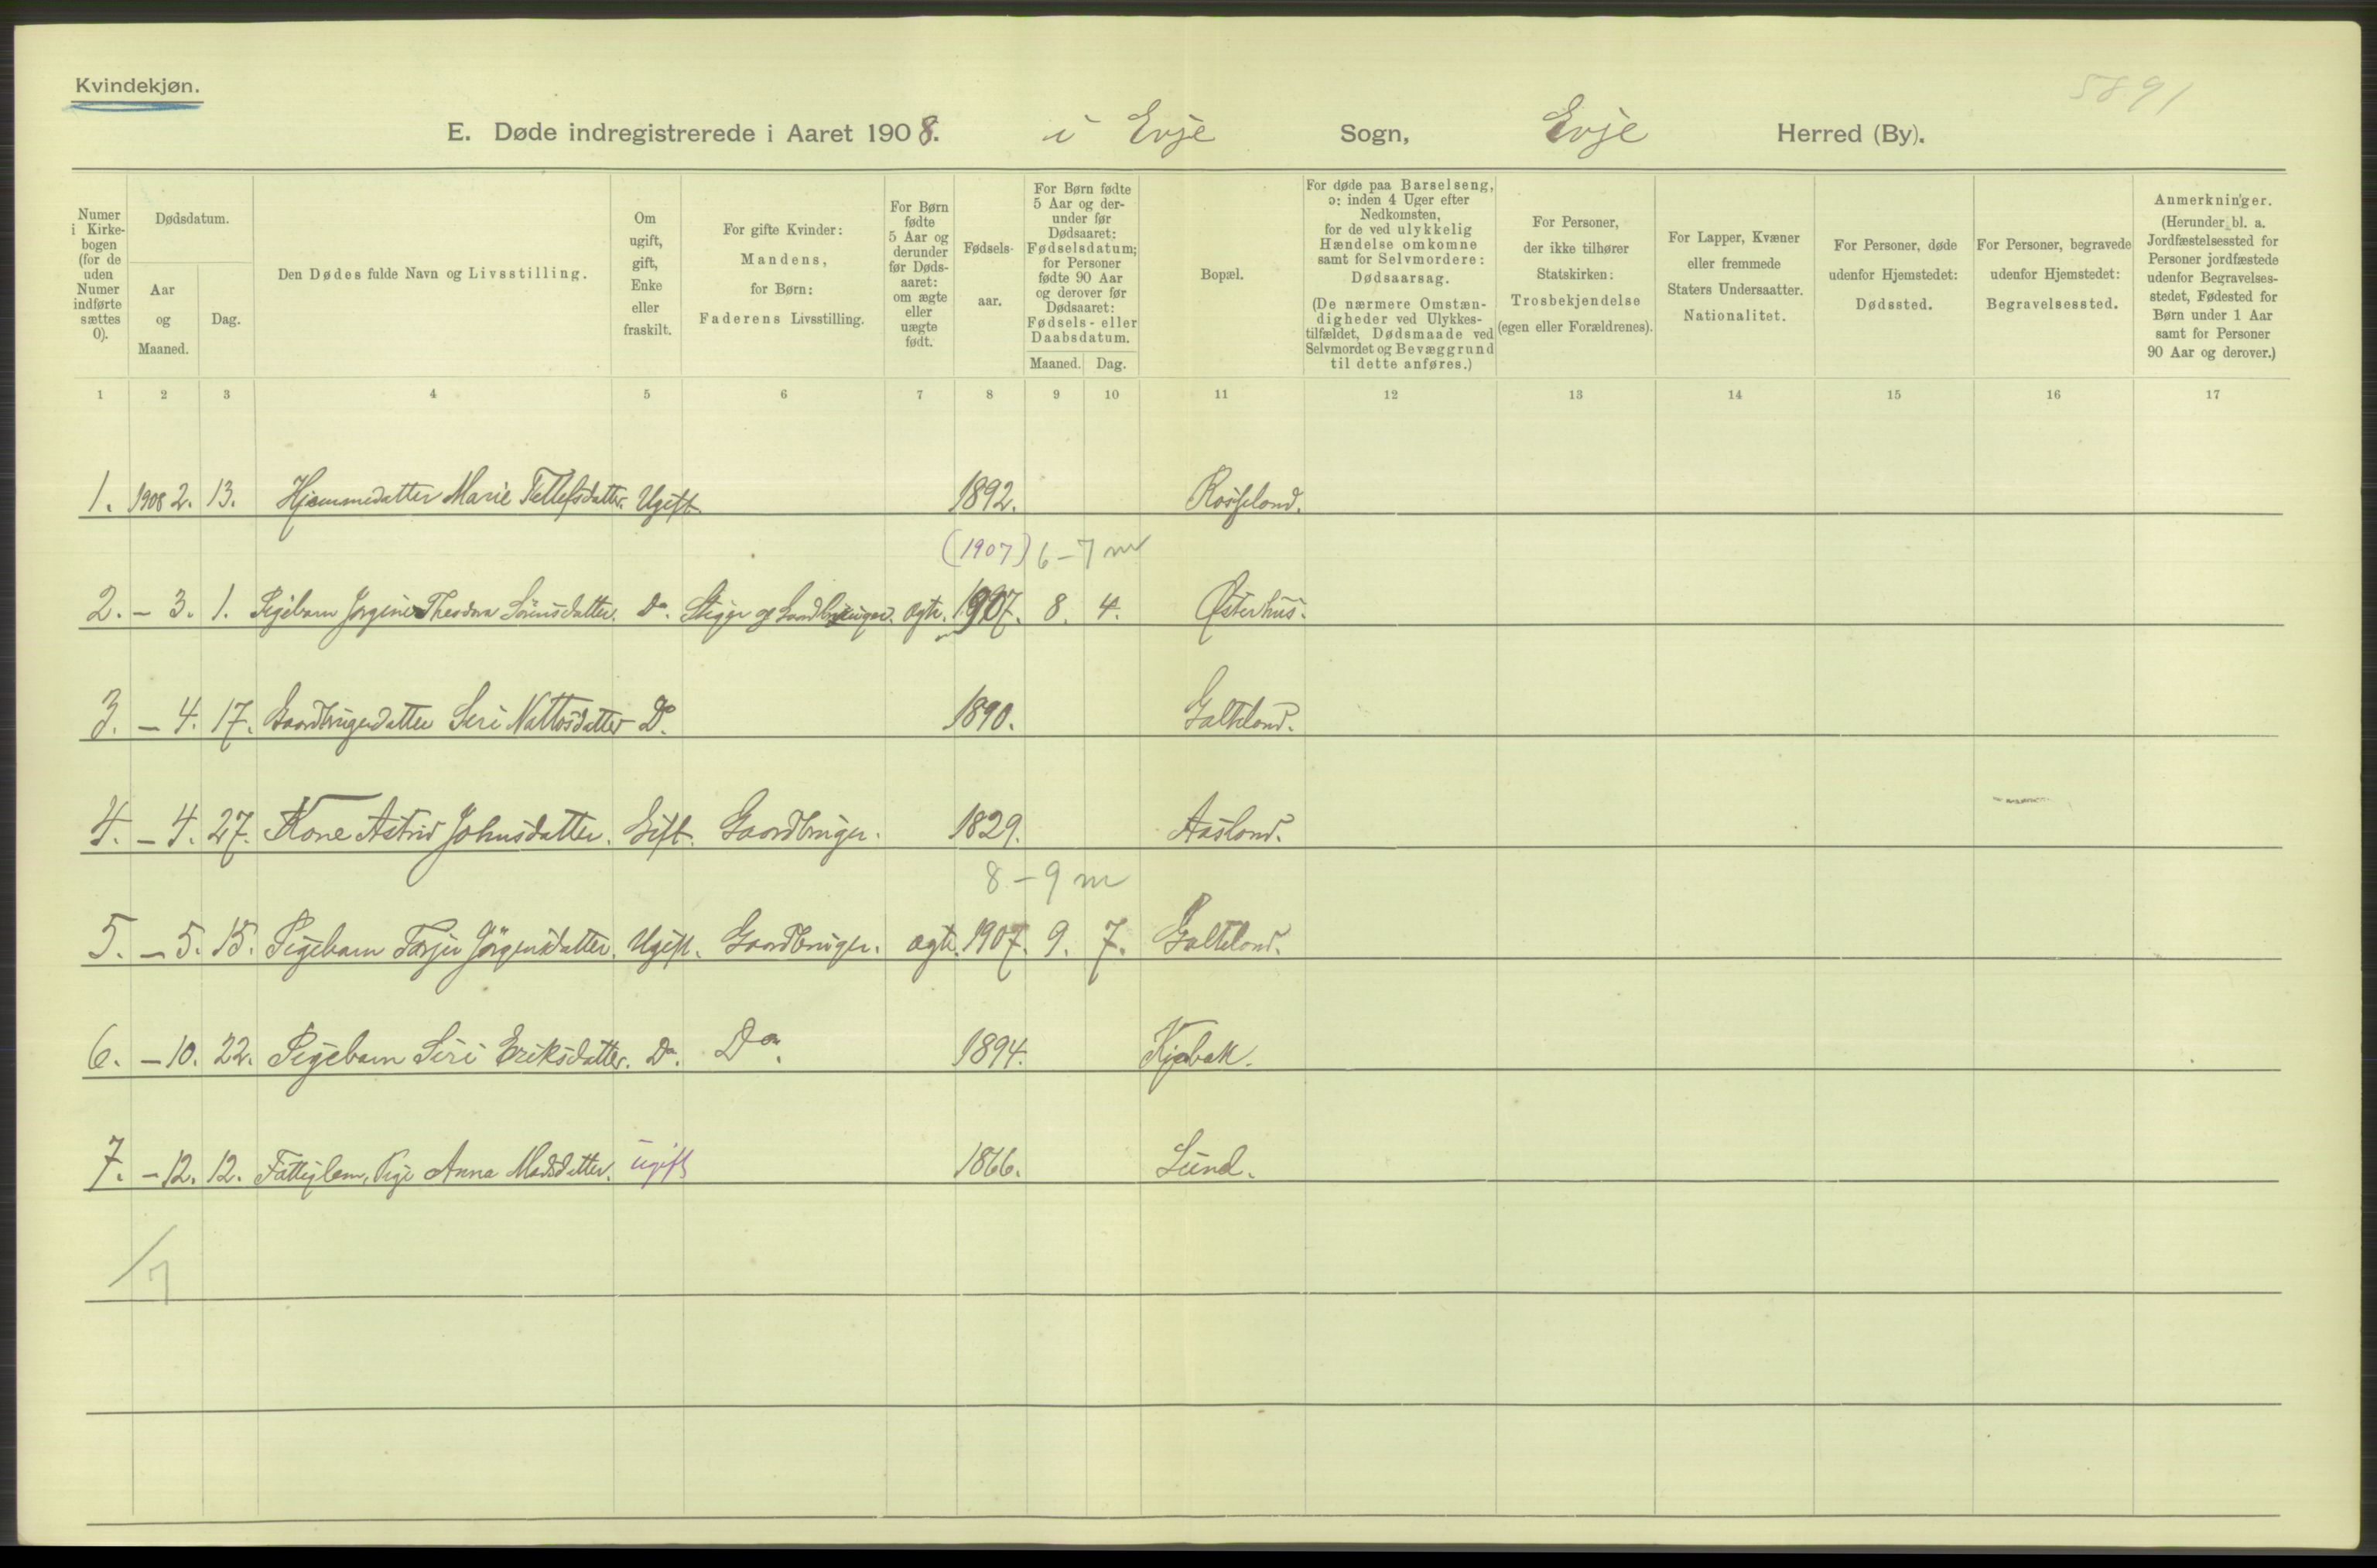 Kvindekjøn.
5891
E. Døde indregistrerede i Aaret 1908. i Evje Sogn, Evje Herred (By).
Numer i Kirke-bogen (for de uden Numer indførte sættes 0).
Dødsdatum.
Aar og Maaned.
Dag.
Den Dødes fulde Navn og Livsstilling.
Om ugift, gift, Enke eller fraskilt.
For gifte Kvinder: Mandens, for Børn: Faderens Livsstilling.
For Børn fødte 5 Aar og derunder før Døds-aaret: om ægte eller uægte født.
Fødsels-aar.
For Børn fødte 5 Aar og der-under før Dødsaaret: Fødselsdatum; for Personer fødte 90 Aar og derover før Dødsaaret: Fødsels- eller Daabsdatum.
Maaned. Dag.
Bopæl.
For døde paa Barselseng, ɔ: inden 4 Uger efter Nedkomsten, for de ved ulykkelig Hændelse omkomne samt for Selvmordere: Dødsaarsag. (De nærmere Omstæn-digheder ved Ulykkes-tilfældet, Dødsmaade ved Selvmordet og Bevæggrund til dette anføres.)
For Personer, der ikke tilhører Statskirken: Trosbekjendelse (egen eller Forældrenes).
For Lapper, Kvæner eller fremmede Staters Undersaatter. Nationalitet.
For Personer, døde udenfor Hjemstedet: Dødssted.
For Personer, begravede udenfor Hjemstedet: Begravelsessted.
Anmerkninger. (Herunder bl. a. Jordfæstelsessted for Personer jordfæstede udenfor Begravelses-stedet, Fødested for Børn under 1 Aar samt for Personer 90 Aar og derover.)
1 2 3 4 5 6 7 8 9 10 11 12 13 14 15 16 17
1. 1908 2. 13. Hjemmedatter Marie Tellefsdatter. Ugift 1892. Rosseland.
(1907) 6-7 m
2. - 3. 1. Pigebarn Jørgine Theodora Sörensdatter. Do. Stiger og Gaardbruger. ægte. 1907. 8. 4. Østerhus.
3. - 4. 17. Gaardbrugerdatter Siri Nottosdatter Do. 1890. Galteland.
4. - 4. 27. Kone Astrid Johnsdatter. Gift. Gaardbruger. 1829. Aasland.
8-9 m
5. - 5. 15. Pigebarn Torjer Jörgensdatter. Ugift. Gaardbruger. ægte. 1907. 9. 7. Galteland.
6. - 10. 22. Pigebarn Siri Eriksdatter. Do. Do. 1894. Kjebak.
7. - 12. 12. Fattiglem, Pige Anna Madsdatter. ugift 1866. Lund.
/7